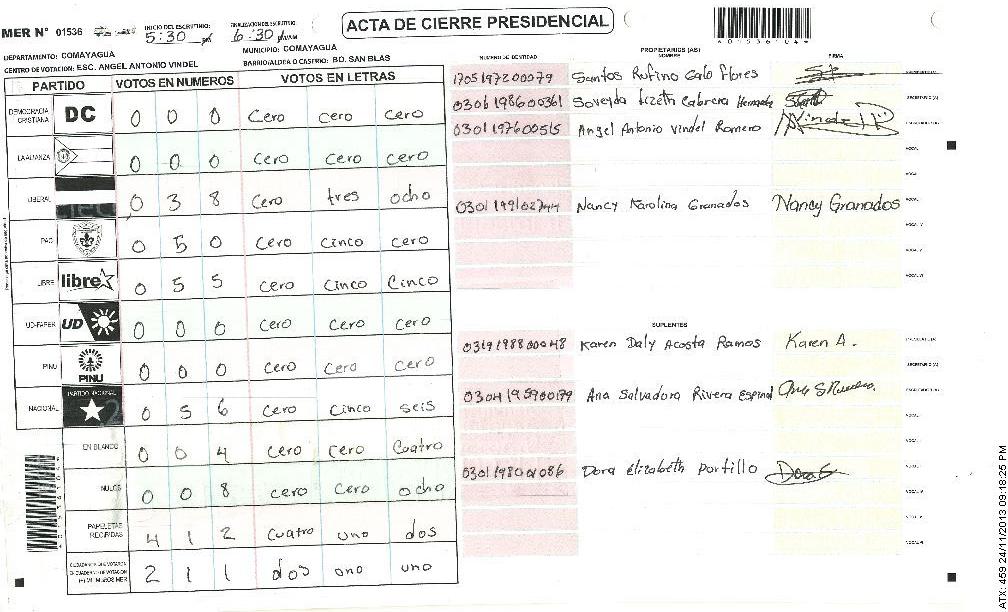 ACTA DE CIERRE PRESIDENCIAL
MER N° 01536
INICIO DEL ESCRUTINIO: 5:30 pm
FINALIZACION DEL ESCRUTINIO: 6:30 pm
DEPARTAMENTO: COMAYAGUA
MUNICIPIO: COMAYAGUA
CENTRO DE VOTACION: ESC. ANGEL ANTONIO VINDEL
BARRIO/ALDEA O CASERIO: BO. SAN BLAS
PARTIDO VOTOS EN NUMEROS VOTOS EN LETRAS
DEMOCRACIA CRISTIANA DC 0 0 0 Cero Cero Cero
LA ALIANZA 0 0 0 Cero Cero Cero
LIBERAL 0 3 8 Cero tres ocho
PAC 0 5 0 Cero Cinco Cero
LIBRE libre 0 5 5 Cero Cinco Cinco
UD-FAPER UD 0 0 0 Cero Cero Cero
PINU PINU 0 0 0 Cero Cero Cero
NACIONAL PARTIDO NACIONAL 0 5 6 Cero Cinco seis
EN BLANCO 0 0 4 Cero Cero Cuatro
NULOS 0 0 8 Cero Cero ocho
PAPELETAS RECIBIDAS 4 1 2 Cuatro uno dos
2 1 1 dos uno uno
PROPIETARIOS (AS)
NUMERO DE IDENTIDAD NOMBRE FIRMA
1705197200079 Santos Rufino Galo Flores
0306198600361 Soveyda Lizeth Cabrera
0301197600515 Angel Antonio Vindel Romero
Nancy Karolina Granados Nancy Granados
SUPLENTES
Karen Daly Acosta Ramos Karen A.
0304195900179 Ana Salvadora Rivera Espinal
Dora Elizabeth Portillo
ATX: 459 24/11/2013 09:18:25 PM